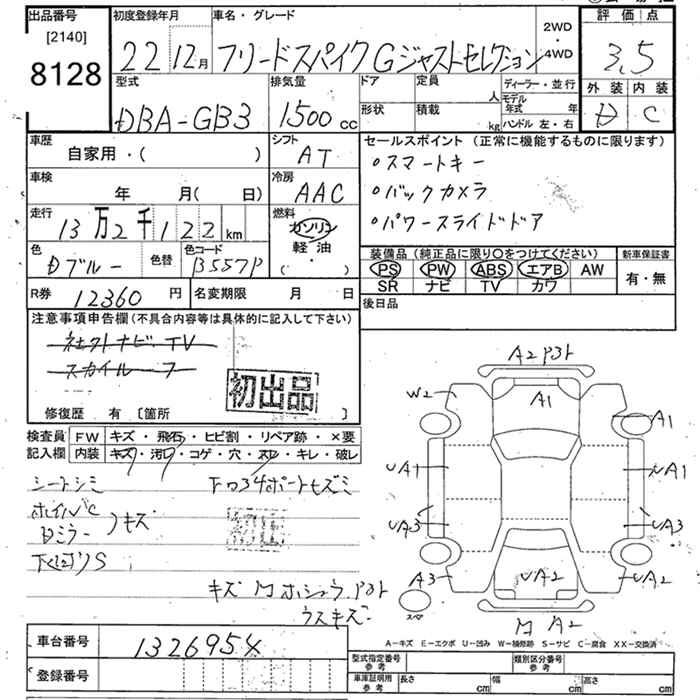 出品番号
[2140]
8128
初度登録年月
22 12月
車名・グレード
フリードスパイクGジャストセレクション
2WD
・
4WD
評価点
3.5
外装 内装
D C
型式
DBA-GB3
排気量
1500 cc
ドア
形状
定員
人
積載
kg
ディーラー・並行
モデル年式 年
ハンドル 左・右
車歴
自家用・( )
シフト
AT
車検
年 月( 日)
冷房
AAC
走行
13万2千122km
燃料
ガソリン
軽油
( ・ )
色
Dブルー
色替
色コード
B557P
R券 12360 円
名変期限 月 日
セールスポイント (正常に機能するものに限ります)
○スマートキー
○バックカメラ
○パワースライドドア
装備品 (純正品に限り○をつけてください)
新車保証書
PS PW ABS エアB AW
SR ナビ TV カワ
有・無
後日品
注意事項申告欄(不具合内容等は具体的に記入して下さい)
初出品
修復歴 有 [箇所 ]
検査員記入欄
FW キズ・飛石・ヒビ割・リペア跡・×要
内装 キズ・汚レ・コゲ・穴・スレ・キレ・破レ
シートシミ
キズ
Dミラー
下廻りS
初出
ウスキズ
A2
W2
A1
A1
UA1
UA1
UA3
UA3
A3
UA2
UA2
A2
スペア
A-キズ E-エクボ U-凹み W-補修跡 S-サビ C-腐食 XX-交換済
車台番号 1326954
登録番号
型式指定番号
参考
類別区分番号
参考
車庫証明用
参考
長さ cm 幅 cm 高さ cm